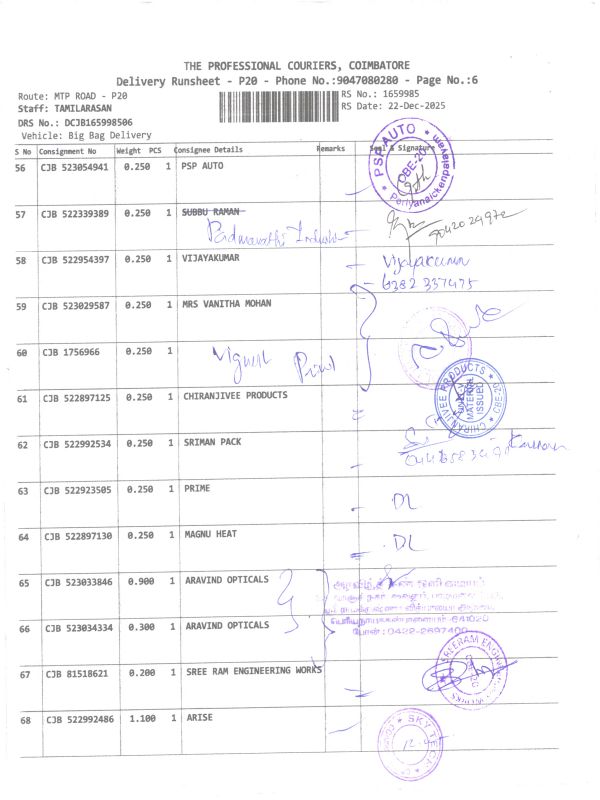 THE PROFESSIONAL COURIERS, COIMBATORE
Delivery Runsheet - P20 - Phone No.:9047080280 - Page No.:6
Route: MTP ROAD - P20
RS No.: 1659985
Staff: TAMILARASAN
RS Date: 22-Dec-2025
DRS No.: DCJB165998506
Vehicle: Big Bag Delivery
S No Consignment No Weight PCS Consignee Details Remarks Seal & Signature
56 CJB 523054941 0.250 1 PSP AUTO
PSP AUTO CBE-20 Periyanaickenpalayam
57 CJB 522339389 0.250 1 SUBBU RAMAN
9042029972
58 CJB 522954397 0.250 1 VIJAYAKUMAR
Vijayakumar
6382 337475
59 CJB 523029587 0.250 1 MRS VANITHA MOHAN
60 CJB 1756966 0.250 1
61 CJB 522897125 0.250 1 CHIRANJIVEE PRODUCTS
CHIRANJIVEE PRODUCTS CBE-20 ONLY MATERIAL ISSUED
62 CJB 522992534 0.250 1 SRIMAN PACK
63 CJB 522923505 0.250 1 PRIME
DL
64 CJB 522897130 0.250 1 MAGNU HEAT
DL
65 CJB 523033846 0.900 1 ARAVIND OPTICALS
66 CJB 523034334 0.300 1 ARAVIND OPTICALS
போன் : 0422-2697400
67 CJB 81518621 0.200 1 SREE RAM ENGINEERING WORKS
68 CJB 522992486 1.100 1 ARISE